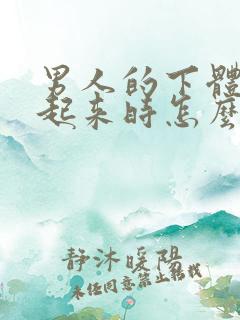 男人的下體
起來時怎麼
静沐暖阳
未经同意禁止搬载